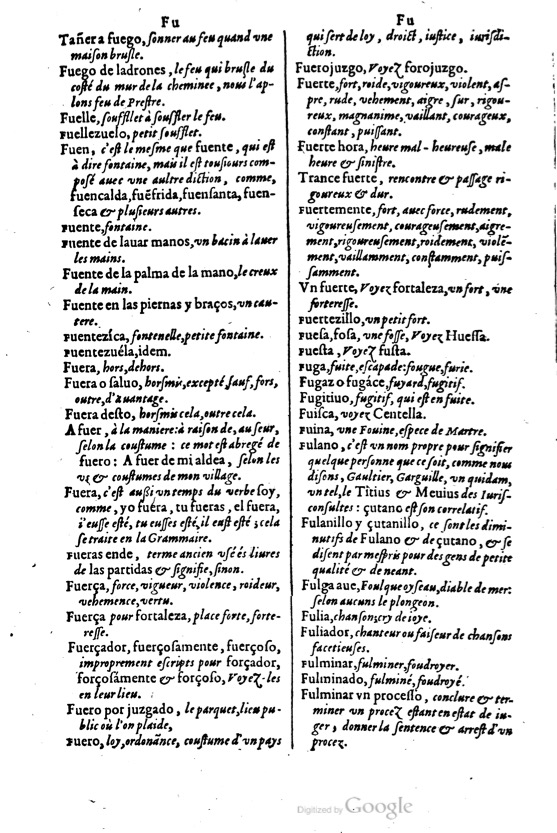 Fu
Tañer a fuego, ſonner au feu quand vne
maiſon bruſle.
Fuego de ladrones, le feu qui bruſle du
coſté du mur de la cheminee, nous l'ap-
lons feu de Preſtre.
Fuelle, ſoufflet à ſouffler le feu.
Fuellezuelo, petit ſoufflet.
Fuen, c'eſt le meſme que fuente, qui eſt
à dire fontaine, mais il eſt touſiours com-
poſé auec vne aultre diction, comme,
fuencalda, fuẽfrida, fuenſanta, fuen-
ſeca & pluſieurs autres.
Fuente, fontaine.
Fuente de lauar manos, vn bacin à lauer
les mains.
Fuente de la palma de la mano, le creux
de la main.
Fuente en las piernas y braços, vn cau-
tere.
Fuentezíca, fontenelle, petite fontaine.
Fuentezuéla, idem.
Fuera, hors, dehors.
Fuera o ſaluo, horſmis, excepté, ſauf, fors,
outre, d'auantage.
Fuera deſto, horſmis cela, outre cela.
A fuer, à la maniere: à raiſon de, au feur,
ſelon la couſtume : ce mot eſt abregé de
fuero : A fuer de mi aldea, ſelon les
vz & couſtumes de mon village.
Fuera, c'eſt auſſi vn temps du verbe ſoy,
comme, yo fuéra, tu fueras, el fuera,
i'euſſe eſté, tu euſſes eſté, il euſt eſté ; cela
ſe traite en la Grammaire.
Fueras ende, terme ancien vſé és liures
de las partidas & ſignifie, ſinon.
Fuerça, force, vigueur, violence, roideur,
vehemence, vertu.
Fuerça pour fortaleza, place forte, forte-
reſſe.
Fuerçador, fuerçoſamente, fuerçoſo,
improprement eſcripts pour forçador,
forçoſámente & forçoſo, Voyez-les
en leur lieu.
Fuero por juzgado, le parquet, lieu pu-
blic où l'on plaide,
Fuero, loy, ordonãnce, couſtume d'vn pays
Fu
qui ſert de loy, droict, iuſtice, iuriſdi-
ction.
Fuero juzgo, Voyez forojuzgo.
Fuerte, fort, roide, vigoureux, violent, aſ-
pre, rude, vehement, aigre, ſur, rigou-
reux, magnanime, vaillant, courageux,
conſtant, puiſſant.
Fuerte hora, heure mal-heureuſe, male
heure & ſiniſtre.
Trance fuerte, rencontre & paſſage ri-
goureux & dur.
Fuertemente, fort, auec force, rudement,
vigoureuſement, courageuſement, aigre-
ment, rigoureuſement, roidement, violẽ-
ment, vaillamment, conſtamment, puiſ-
ſamment.
Vn fuerte, Voyez fortaleza, vn fort, vne
fortereſſe.
Fuertezillo, vn petit fort.
Fueſa, foſa, vne foſſe, Voyez Hueſſa.
Fueſta, Voyez fuſta.
Fuga, fuite, eſcapade: fougue, furie.
Fugaz o fugáce, fuyard, fugitif.
Fugitiuo, fugitif, qui eſt en fuite.
Fuiſca, voyez Centella.
Fuina, vne Fouine, eſpece de Martre.
Fulano, c'eſt vn nom propre pour ſignifier
quelque perſonne que ce ſoit, comme nous
diſons, Gaultier, Garguille, vn quidam,
vn tel, le Titius & Meuius des Iuriſ-
conſultes : çutano eſt ſon correlatif.
Fulanillo y çutanillo, ce ſont les dimi-
nutifs de Fulano & de çutano, & ſe
diſent par meſpris pour des gens de petite
qualité & de neant.
Fulga aue, Foulque oyſeau, diable de mer:
ſelon aucuns le plongeon.
Fulia, chanſon; cry de ioye.
Fuliador, chanteur ou faiſeur de chanſons
facetieuſes.
Fulminar, fulminer, foudroyer.
Fulminado, fulminé, foudroyé.
Fulminar vn proceſſo, conclure & ter-
miner vn procez eſtant en eſtat de iu-
ger, donner la ſentence & arreſt d'vn
procez.
Digitized by Google